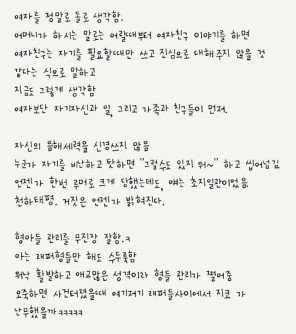 여자를 정말로 돌로 생각함.
어머니가 하시는 말로는 어릴때부터 여자친구 이야기를 하면
여자친구는 자기를 필요할때만 쓰고 진심으로 대해주지 않을 것
같다는 식으로 말하고
지금도 그렇게 생각함
여자보단 자기자신과 일, 그리고 가족과 친구들이 먼저.
자신의 음해세력을 신경쓰지 않음
누군가 자기를 비난하고 탓하면 "그럴수도 있지 뭐~" 하고 씹어넘김
언젠가 한번 루머로 크게 당했는데도, 얘는 초지일관이었음
천하태평. 거짓은 언젠가 밝혀진다.
형아들 관리를 무진장 잘함.ㅋ
아는 래퍼형들만 해도 수두룩함
워낙 활발하고 애교많은 성격이라 형들 관리가 쩔어줌
오죽하면 사건터졌을때 여기저기 래퍼들사이에서 지코 가
난무했을까ㅋㅋㅋㅋㅋ